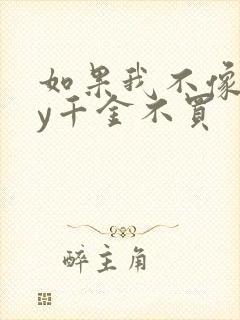 如果我不像
y千金不買
醉主角